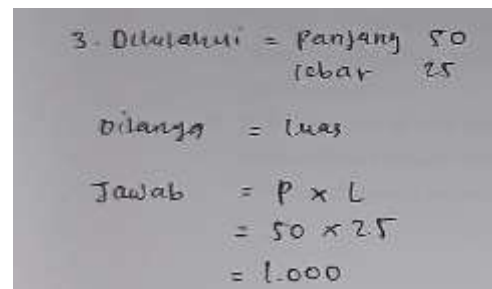 3. Diketahui = Panjang 50
lebar 25
Ditanya = luas
Jawab = P x L
= 50 x 25
= 1.000